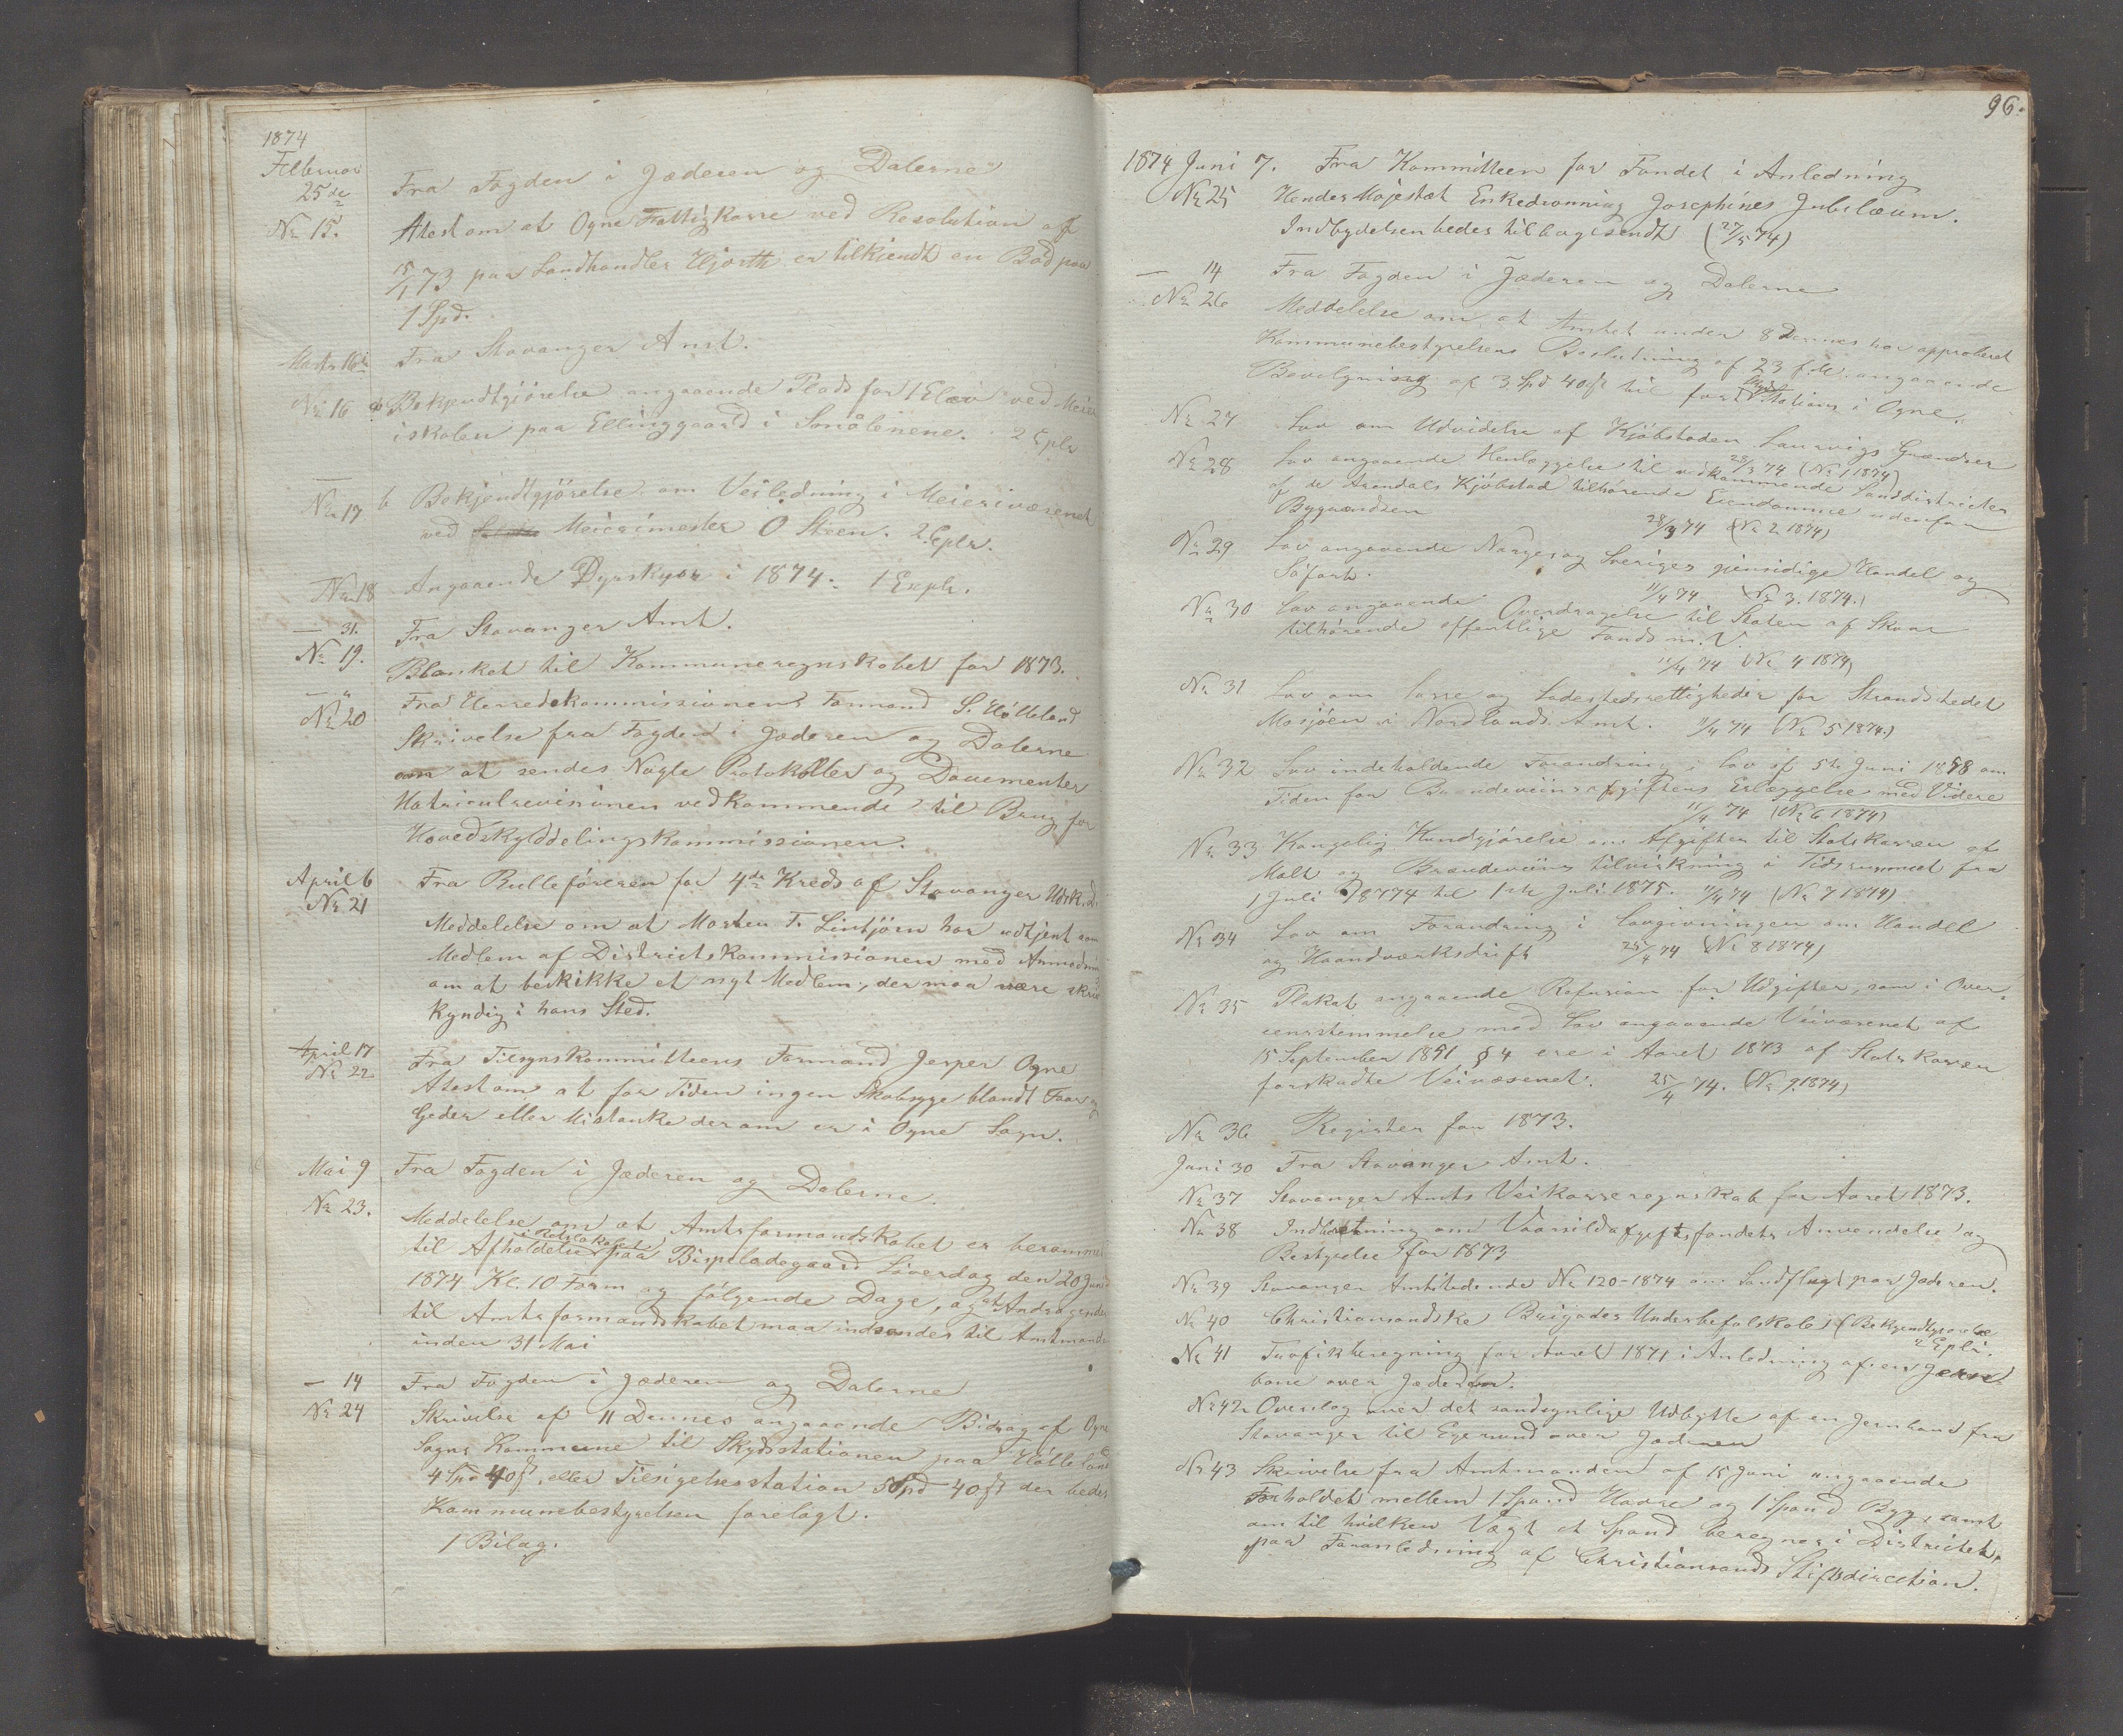 1874
Februar
25de
Fra Fogden i Jæderen og Dalerne
No 15.
Atest om at Ogne Fattigkasse ved Resolution af
15/1 73 paa Landhandler Hjorth er tilkjendt en Bod paa
1 Spd.
Marts 16de
Fra Stavanger Amt.
No 16 a Bekjendtgjörelse angaaende Plads for 1 Elev ved Meier
iskolen paa Ellinggaard i Smålenene. 2 Eplr
No 17 b Bekjendtgjörelse om Veiledning i Meierivæsenet
ved Meierimester O Steen. 2 Eplr.
No 18 Angaaende Dyrskuer i 1874. 1 Explr.
— 31.
Fra Stavanger Amt.
No 19.
Blanket til Kommuneregnskabet for 1873.
— "
No 20
Fra Herredskommissionens Formand S. Hölleland
Skrivelse fra Fogden i Jæderen og Dalerne
om at sendes Nogle Protokoller og Documenter
Matriculrevisionen vedkommende til Brug for
Hovedskylddelingskommissionen.
April 6
No 21
Fra Rulleföreren for 4de Kreds af Stavanger Udsk. D.
Meddelelse om at Morten T. Lintjörn har udtjent som
Medlem af Districtskommissionen med Anmodning
om at beskikke et nyt Medlem, der maa være skriv
kyndig i hans Sted.
April 17
No 22
Fra Tilsynskommitteens Formand Jesper Ogne
Atest om at for Tiden ingen Skabsyge blandt Faar og
Geder eller Mistanke derom er i Ogne Sogn.
Mai 9
Fra Fogden i Jæderen og Dalerne.
No 23.
Meddelelse om at Amtsformandskabet er berammet
til Afholdelse i Retslokalet paa Bispeladegaard Löverdag den 20 Juni
1874 Kl. 10 Form og fölgende Dage, og at Andragender
til Amtsformandskabet maa indsendes til Amtmanden
inden 31 Mai
— 14
Fra Fogden i Jæderen og Dalerne
No 24
Skrivelse af 11 Dennes angaaende Bidrag af Ogne
Sogns Kommune til Skydsstationen paa Hölleland
4 Spd 40 ß, eller Tilsigelsesstation 5 Spd 40 ß der bedes
Kommunebestyrelsen forelagt.
1 Bilag.
96.
1874 Juni 7. Fra Kommitteen for Fondet i Anledning
No 25 Hendes Majestæt Enkedronning Josephines Jubelæum.
Indbydelsen bedes tilbagesendt (27/5 74)
— 14 Fra Fogden i Jæderen og Dalerne
No 26 Meddelelse om at Amtet under 8 Dennes har approberet
Kommunebestyrelsens Beslutning af 23 f. M. angaaende
Bevilgning af 3 Spd 40 ß til fast Skydsstation i Ogne.
No 27 Lov om Udvidelse af Kjöbstaden Laurvigs Grændser
28/3 74 (No 1 1874)
No 28 Lov angaaende Henlæggelse til vedkommende Landdistricter
af de Arendals Kjöbstad tilhörende Eiendomme udenfor
Bygrændsen 28/3 74 (No 2 1874)
No 29 Lov angaaende Norges og Sveriges gjensidige Handel og
Söfart. 11/4 74 (No 3. 1874.)
No 30 Lov angaaende Overdragelse til Staten af Skove
tilhörende offentlige Fonds m. V.
11/4 74 (No 4 1874)
No 31 Lov om Losse og Ladestedsrettigheder for Strandstedet
Mosjöen i Nordlands Amt. 11/4 74 (No 5 1874.)
No 32 Lov indeholdende Forandring i Lov af 5te Juni 1858 om
Tiden for Brændeviinsafgiftens Erlæggelse med Videre
11/4 74 (No 6 1874)
No 33 Kongelig Kundgjörelse om Afgiften til Statskassen af
Malt og Brændeviins tilvirkning i Tidsrummet fra
1 Juli 18774 til 1ste Juli 1875. 11/4 74 (No 7 1874)
No 34 Lov om Forandring i Lovgivningen om Handel
og Haandværksdrift 25/4 74 (No 8 1874)
No 35 Plakat angaaende Refusion for Udgifter, som i Over-
eensstemmelse med Lov angaaende Veivæsenet af
15 September 1851 § 4 ere i Aaret 1873 af Statskassen
forskudte Veivæsenet. 25/4 74. (No 9. 1874)
No 36 Register for 1873.
Juni 30 Fra Stavanger Amt.
No 37 Stavanger Amts Veikasseregnskab for Aaret 1873.
No 38 Indbretning om Vaarsildafgiftsfondets Anvendelse og
Bestyrelse for 1873
No 39 Stavanger Amtstidende No 120-1874 om Sandflugt paa Jæderen.
No 40 Christiansandske Brigades Underbefalskole (Bekjendtgjørelse
2 Eplr.
No 41 Trafikberegning for Aaret 1871 i Anledning af en Jern
bane over Jæderen.
No 42 Overslag over det sandsynlige Udbytte af en Jernbane fra
Stavanger til Egersund over Jæderen
No 43 Skrivelse fra Amtmanden af 15 Juni angaaende
Forholdet mellem 1 Spand Havre og 1 Spand Byg, samt
om til hvilken Vægt et Spand beregnes i Districtet,
paa Foranledning af Christiansands Stiftsdirection.